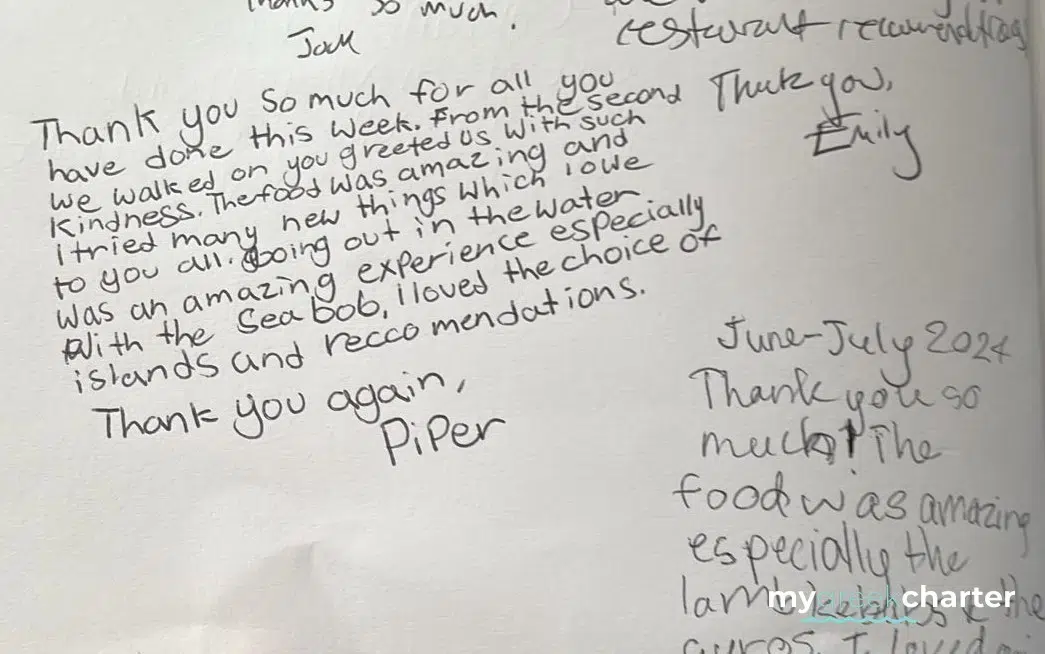 so much.
resturaut
Thank you so much for all you
have done this week. From the second
we walked on you greeted us with such
kindness. The food was amazing and
I tried many new things which i owe
to you all. Going out in the water
was an amazing experience especially
with the Sea bob, i loved the choice of
islands and reccomendations.
Thank you again,
PiPer
Thuck you,
Emily
June-July 2024
Thank you so
much! The
food was amazing
especially the
lamb kebabs & the
gyros. I loved
my charter